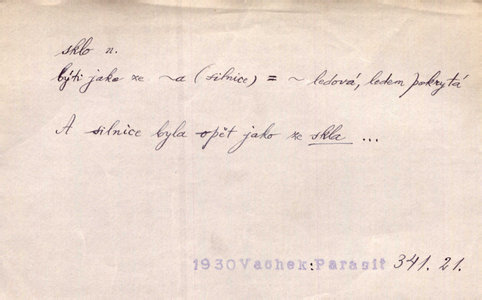 sklo n.
býti jako ze ~a (silnice) = ~ ledová, ledem pokrytá
A silnice byla opět jako ze skla ...
1930 Vachek: Parasit 341. 21.